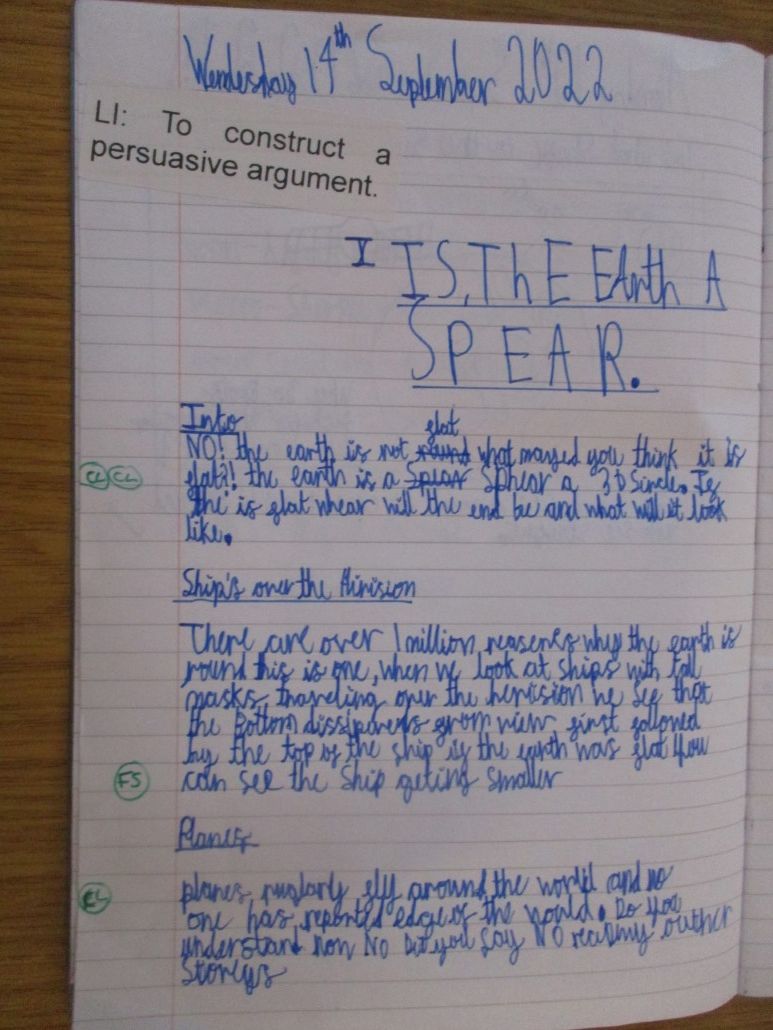 Wendesday 14th September 2022
LI: To construct a
persuasive argument.
IS, ThE EArth A
SPEAR.
Into
NO! the earth is not round glat what mayed you think it is
CL CL glat?! the earth is a Spear Sphear a 3D Sircle. Ig
the is glat whear will the end be and what will it look
like.
Ship's over the Hirision
There are over 1 million reasenes why the earth is
round this is one, when we look at ships with tall
masks, traveling over the herision we see that
the Bottom dissiparers grom view girst gollowed
by the top og the ship ig the earth was glat you
FS can see the ship geting smaller
Planes
planes ruglarly gly around the world and no
one has reported edge og the world. Do you
understand now No but you say NO read my outher
Storeys